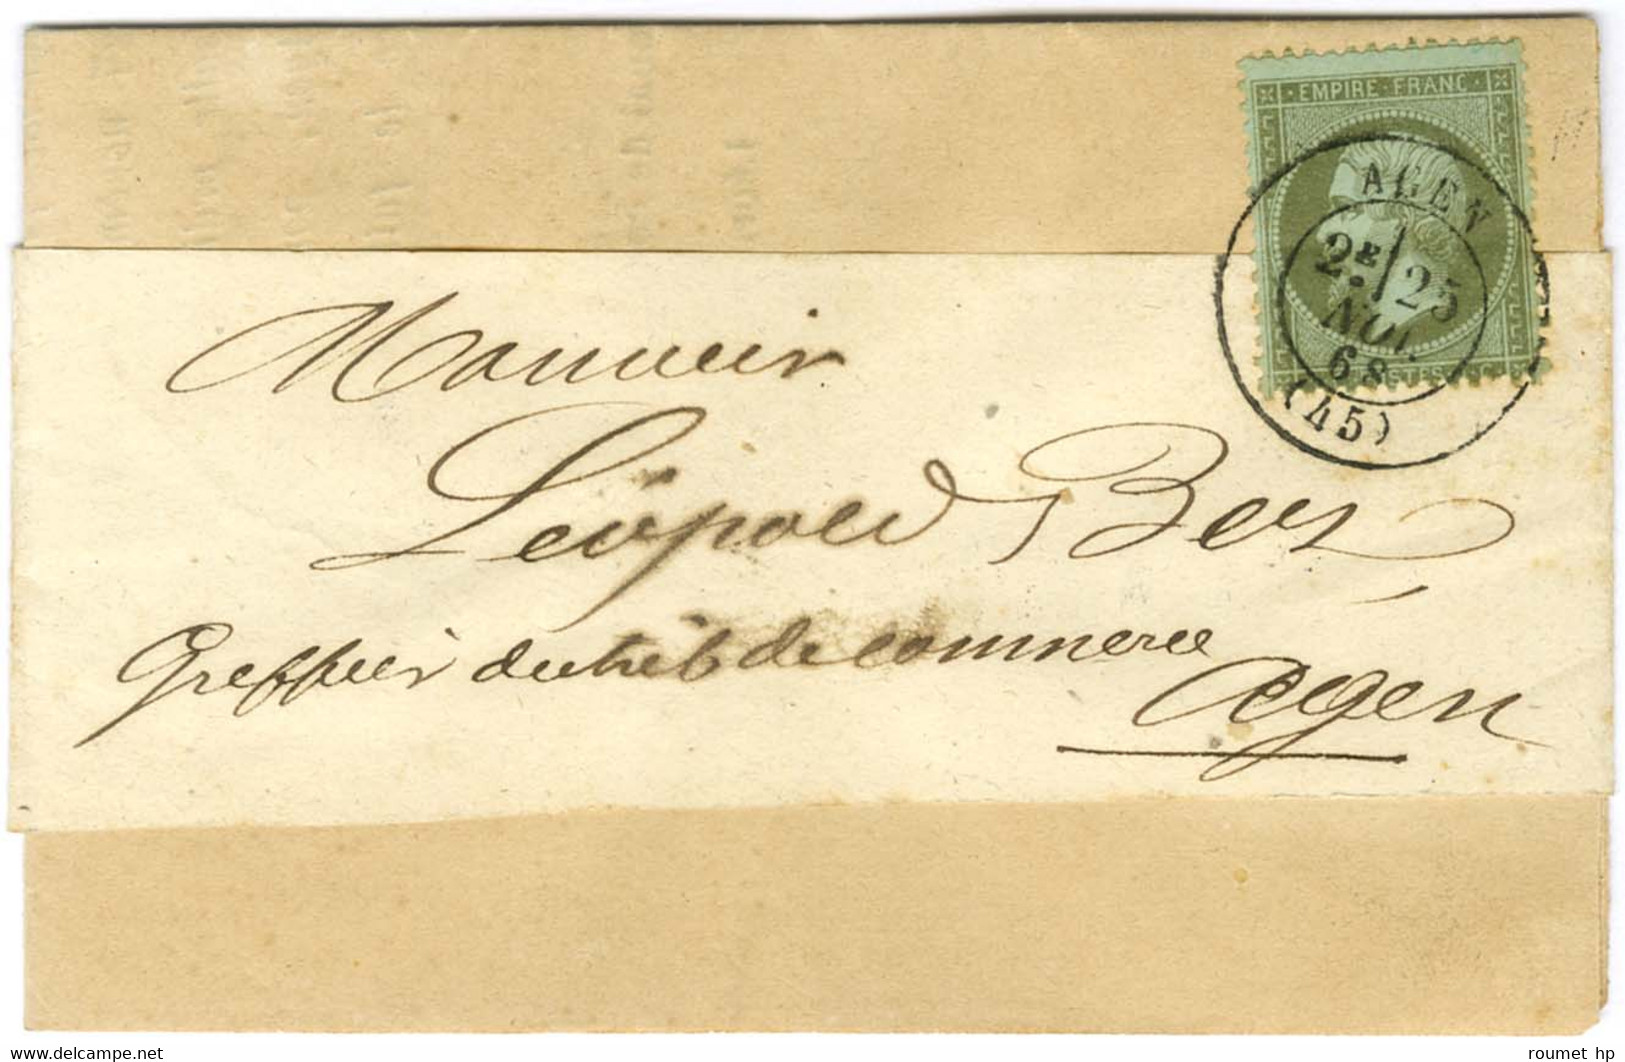 EMPIRE FRANC
AGEN
2E 25
NOV.
68
(45)
POSTES
Monsieur
Léopold Bez
Greffier du trib de commerce
Agen
www.delcampe.net
roumet hp